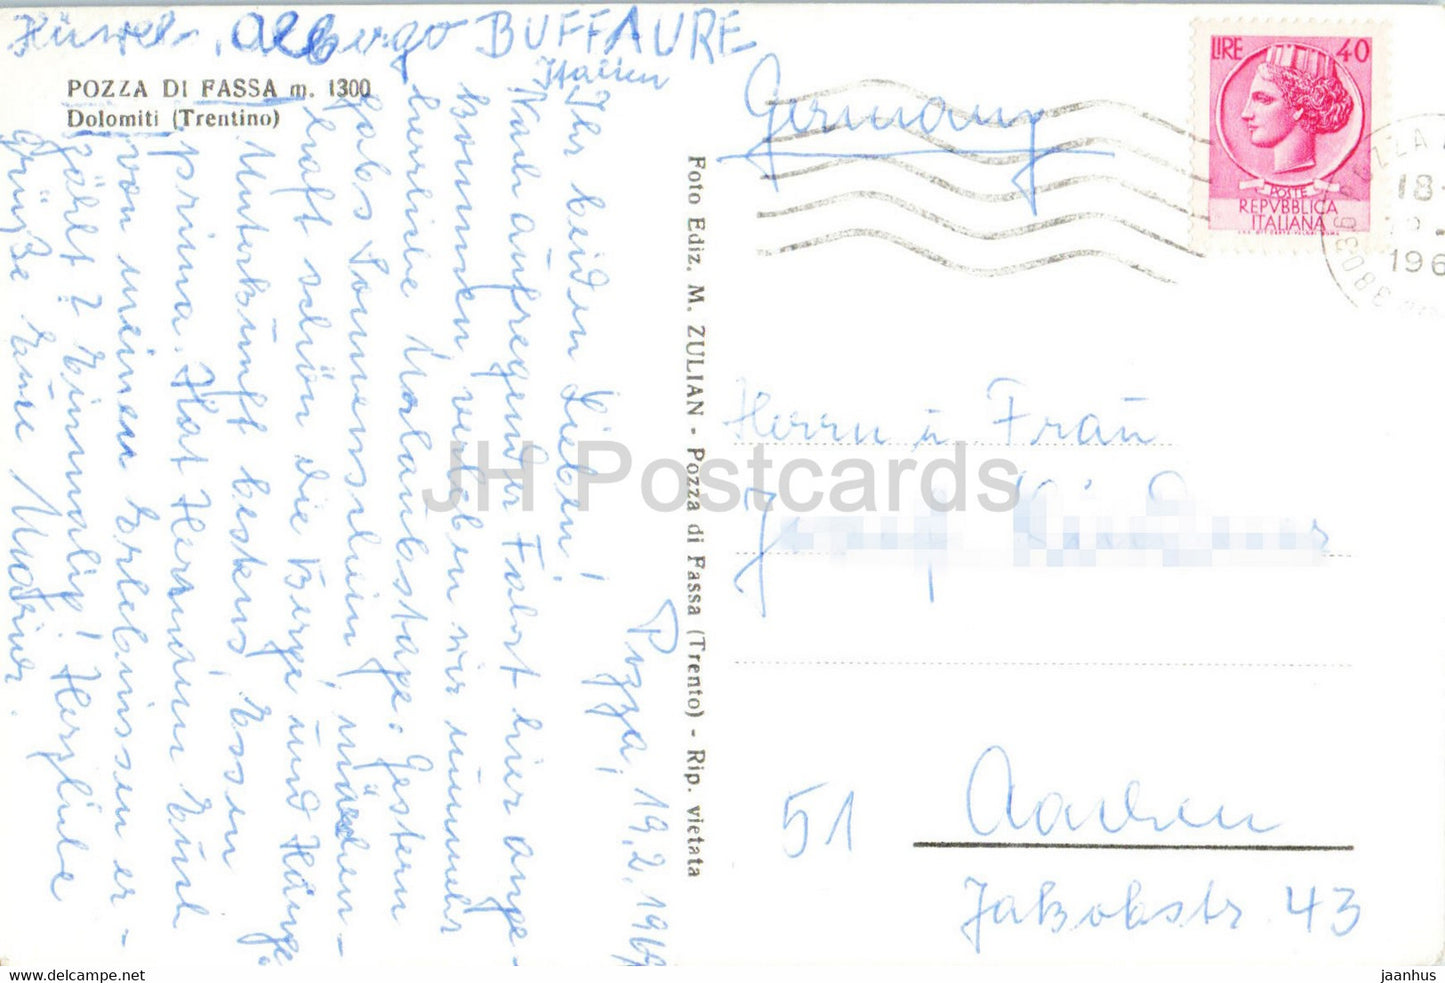 Albergo BUFFAURE
Italien
POZZA DI FASSA m. 1300
Dolomiti (Trentino)
Pozza, 19.2.1969
Ihr beiden Lieben!
Nach aufregender Fahrt hier ange-
kommen verleben wir nunmehr
herrliche Urlaubstage. Gestern
gabs Sonnenschein, märchen-
haft schön die Berge und Hänge.
Unterkunft bestens, Essen
prima. Hat Hermann Euch
von meinen Erlebnissen er-
zählt? Einmalig! Herzliche
Grüße Eure
Foto Ediz. M. ZULIAN - Pozza di Fassa (Trento) - Rip. vietata
Germany
LIRE 40
POSTE
REPVBBLICA
ITALIANA
POZZA
18
196
38036
Herrn u Frau
Josef
51 Aachen
Jakobstr. 43
JH Postcards
https://www.delcampe.net
jaanhus